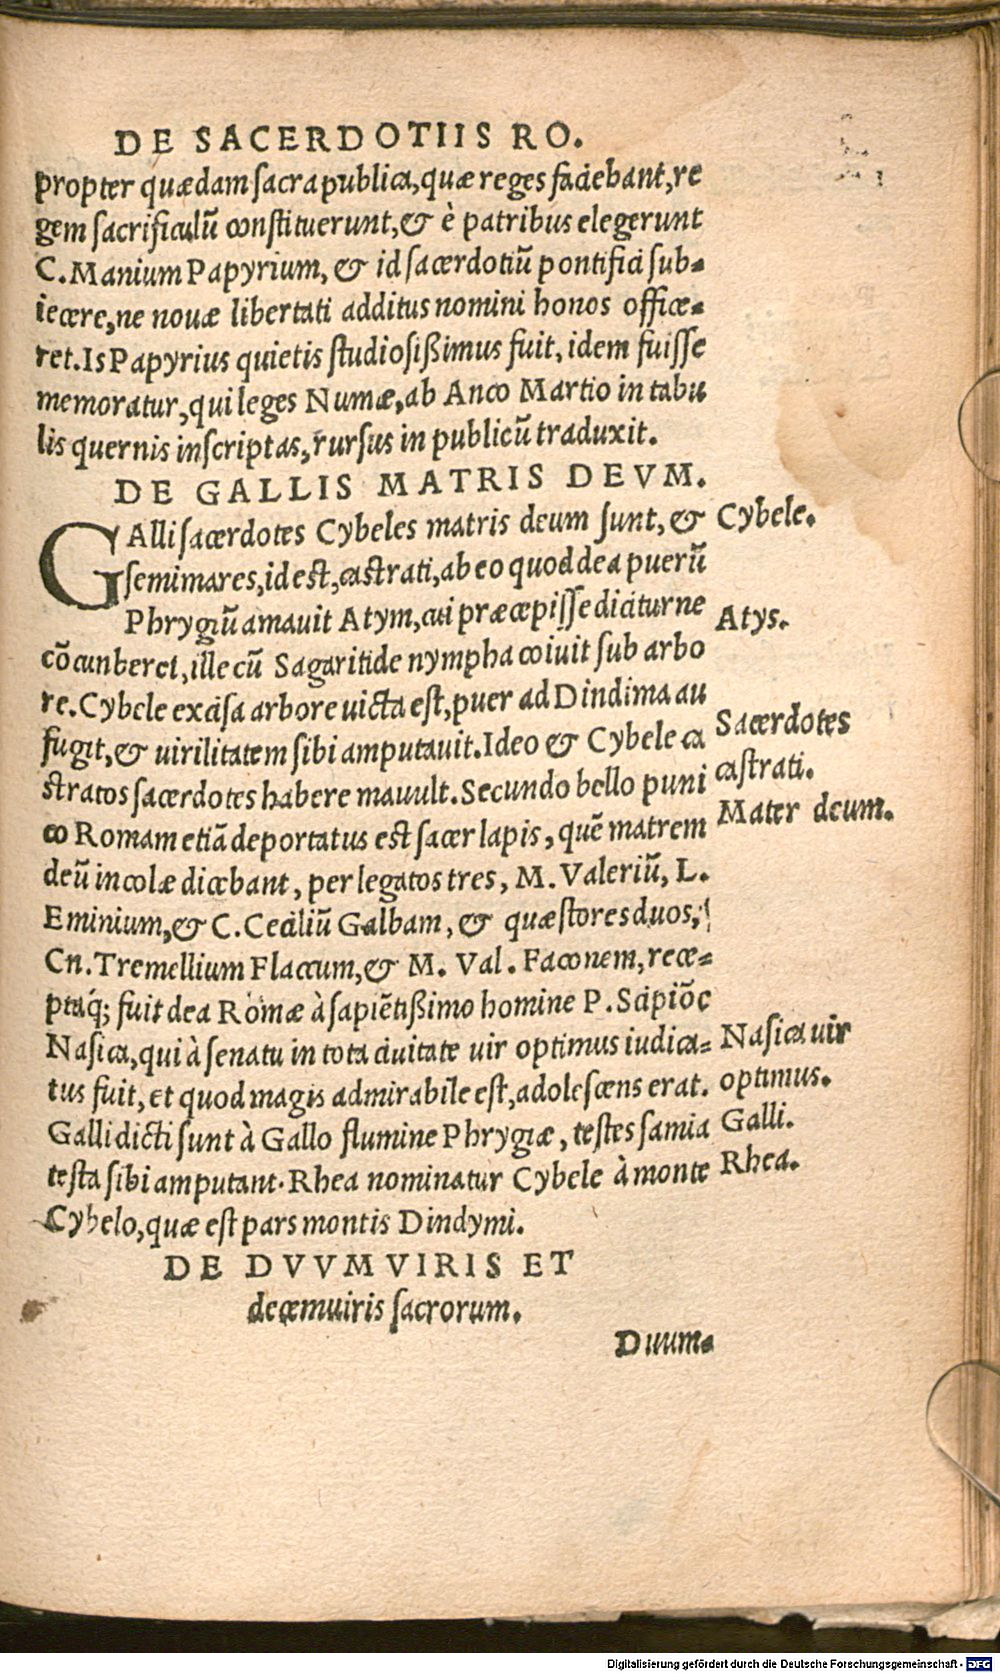 DE SACERDOTIIS RO.
propter quædam sacra publica, quæ reges faciebant, re
gem sacrificulũ constituerunt, & è patribus elegerunt
C. Manium Papyrium, & id sacerdotiũ pontifici sub-
iecere, ne nouæ libertati additus nomini honos office-
ret. Is Papyrius quietis studiosißimus fuit, idem fuisse
memoratur, qui leges Numæ, ab Anco Martio in tabu
lis quernis inscriptas, rursus in publicũ traduxit.
DE GALLIS MATRIS DEVM.
GAlli sacerdotes Cybeles matris deum sunt, & Cybele.
semimares, id est, castrati, ab eo quod dea puerũ
Phrygiũ amauit Atym, cui præcepisse dicitur ne Atys.
cõcunberet, ille cũ Sagaritide nympha coiuit sub arbo
re. Cybele excisa arbore uicta est, puer ad Dindima au
fugit, & virilitatem sibi amputauit. Ideo & Cybele ca Sacerdotes
stratos sacerdotes habere mauult. Secundo bello puni castrati.
co Romam etiã deportatus est sacer lapis, quẽ matrem Mater deum.
deũ incolæ dicebant, per legatos tres, M. Valeriũ, L.
Eminium, & C. Ceciliũ Galbam, & quæstores duos,
Cn. Tremellium Flaccum, & M. Val. Faconem, rece-
ptaq́; fuit dea Romæ à sapiẽtißimo homine P. Scipiõe
Nasica, qui à senatu in tota ciuitate uir optimus iudica- Nasica uir
tus fuit, et quod magis admirabile est, adolescens erat. optimus.
Galli dicti sunt à Gallo flumine Phrygiæ, testes samia Galli.
testa sibi amputant. Rhea nominatur Cybele à monte Rhea.
Cybelo, quæ est pars montis Dindymi.
DE DVVMVIRIS ET
decemuiris sacrorum.
Duum-
Digitalisierung gefördert durch die Deutsche Forschungsgemeinschaft - DFG